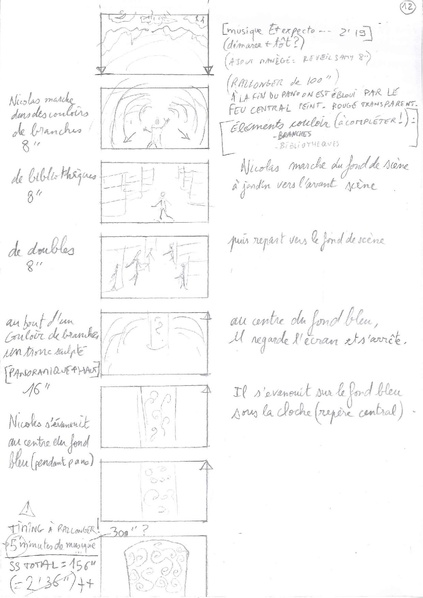 12
[musique Et expecto --- 2'19]
(démarre + tôt?)
8")
(RALLONGER de 100")
À LA FIN DU PANO ON EST ÉBLOUI PAR LE
FEU CENTRAL TEINT. ROUGE TRANSPARENT.
Eléments couloir (à compléter!) :
- BRANCHES
- BIBLIOTHÈQUES
Nicolas marche
dans des couloirs
de branches
8"
de bibliothèques
8"
Nicolas marche du fond de scène
à jardin vers l'avant scène
de doubles
8"
puis repart vers le fond de scène
au bout d'un
couloir de branches
un tronc sculpté
[PANORAMIQUE
16"
au centre du fond bleu,
Il regarde l'écran et s'arrête.
Nicolas s'évanouit
au centre du fond
bleu (pendant pano)
Il s'évanouit sur le fond bleu
sous la cloche (repère central).
TIMING À RALLONGER!
300"?
5 minutes de musique
SS TOTAL = 156"
(= 2'36") ++